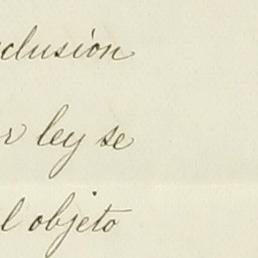 clusión
r ley se
l objeto